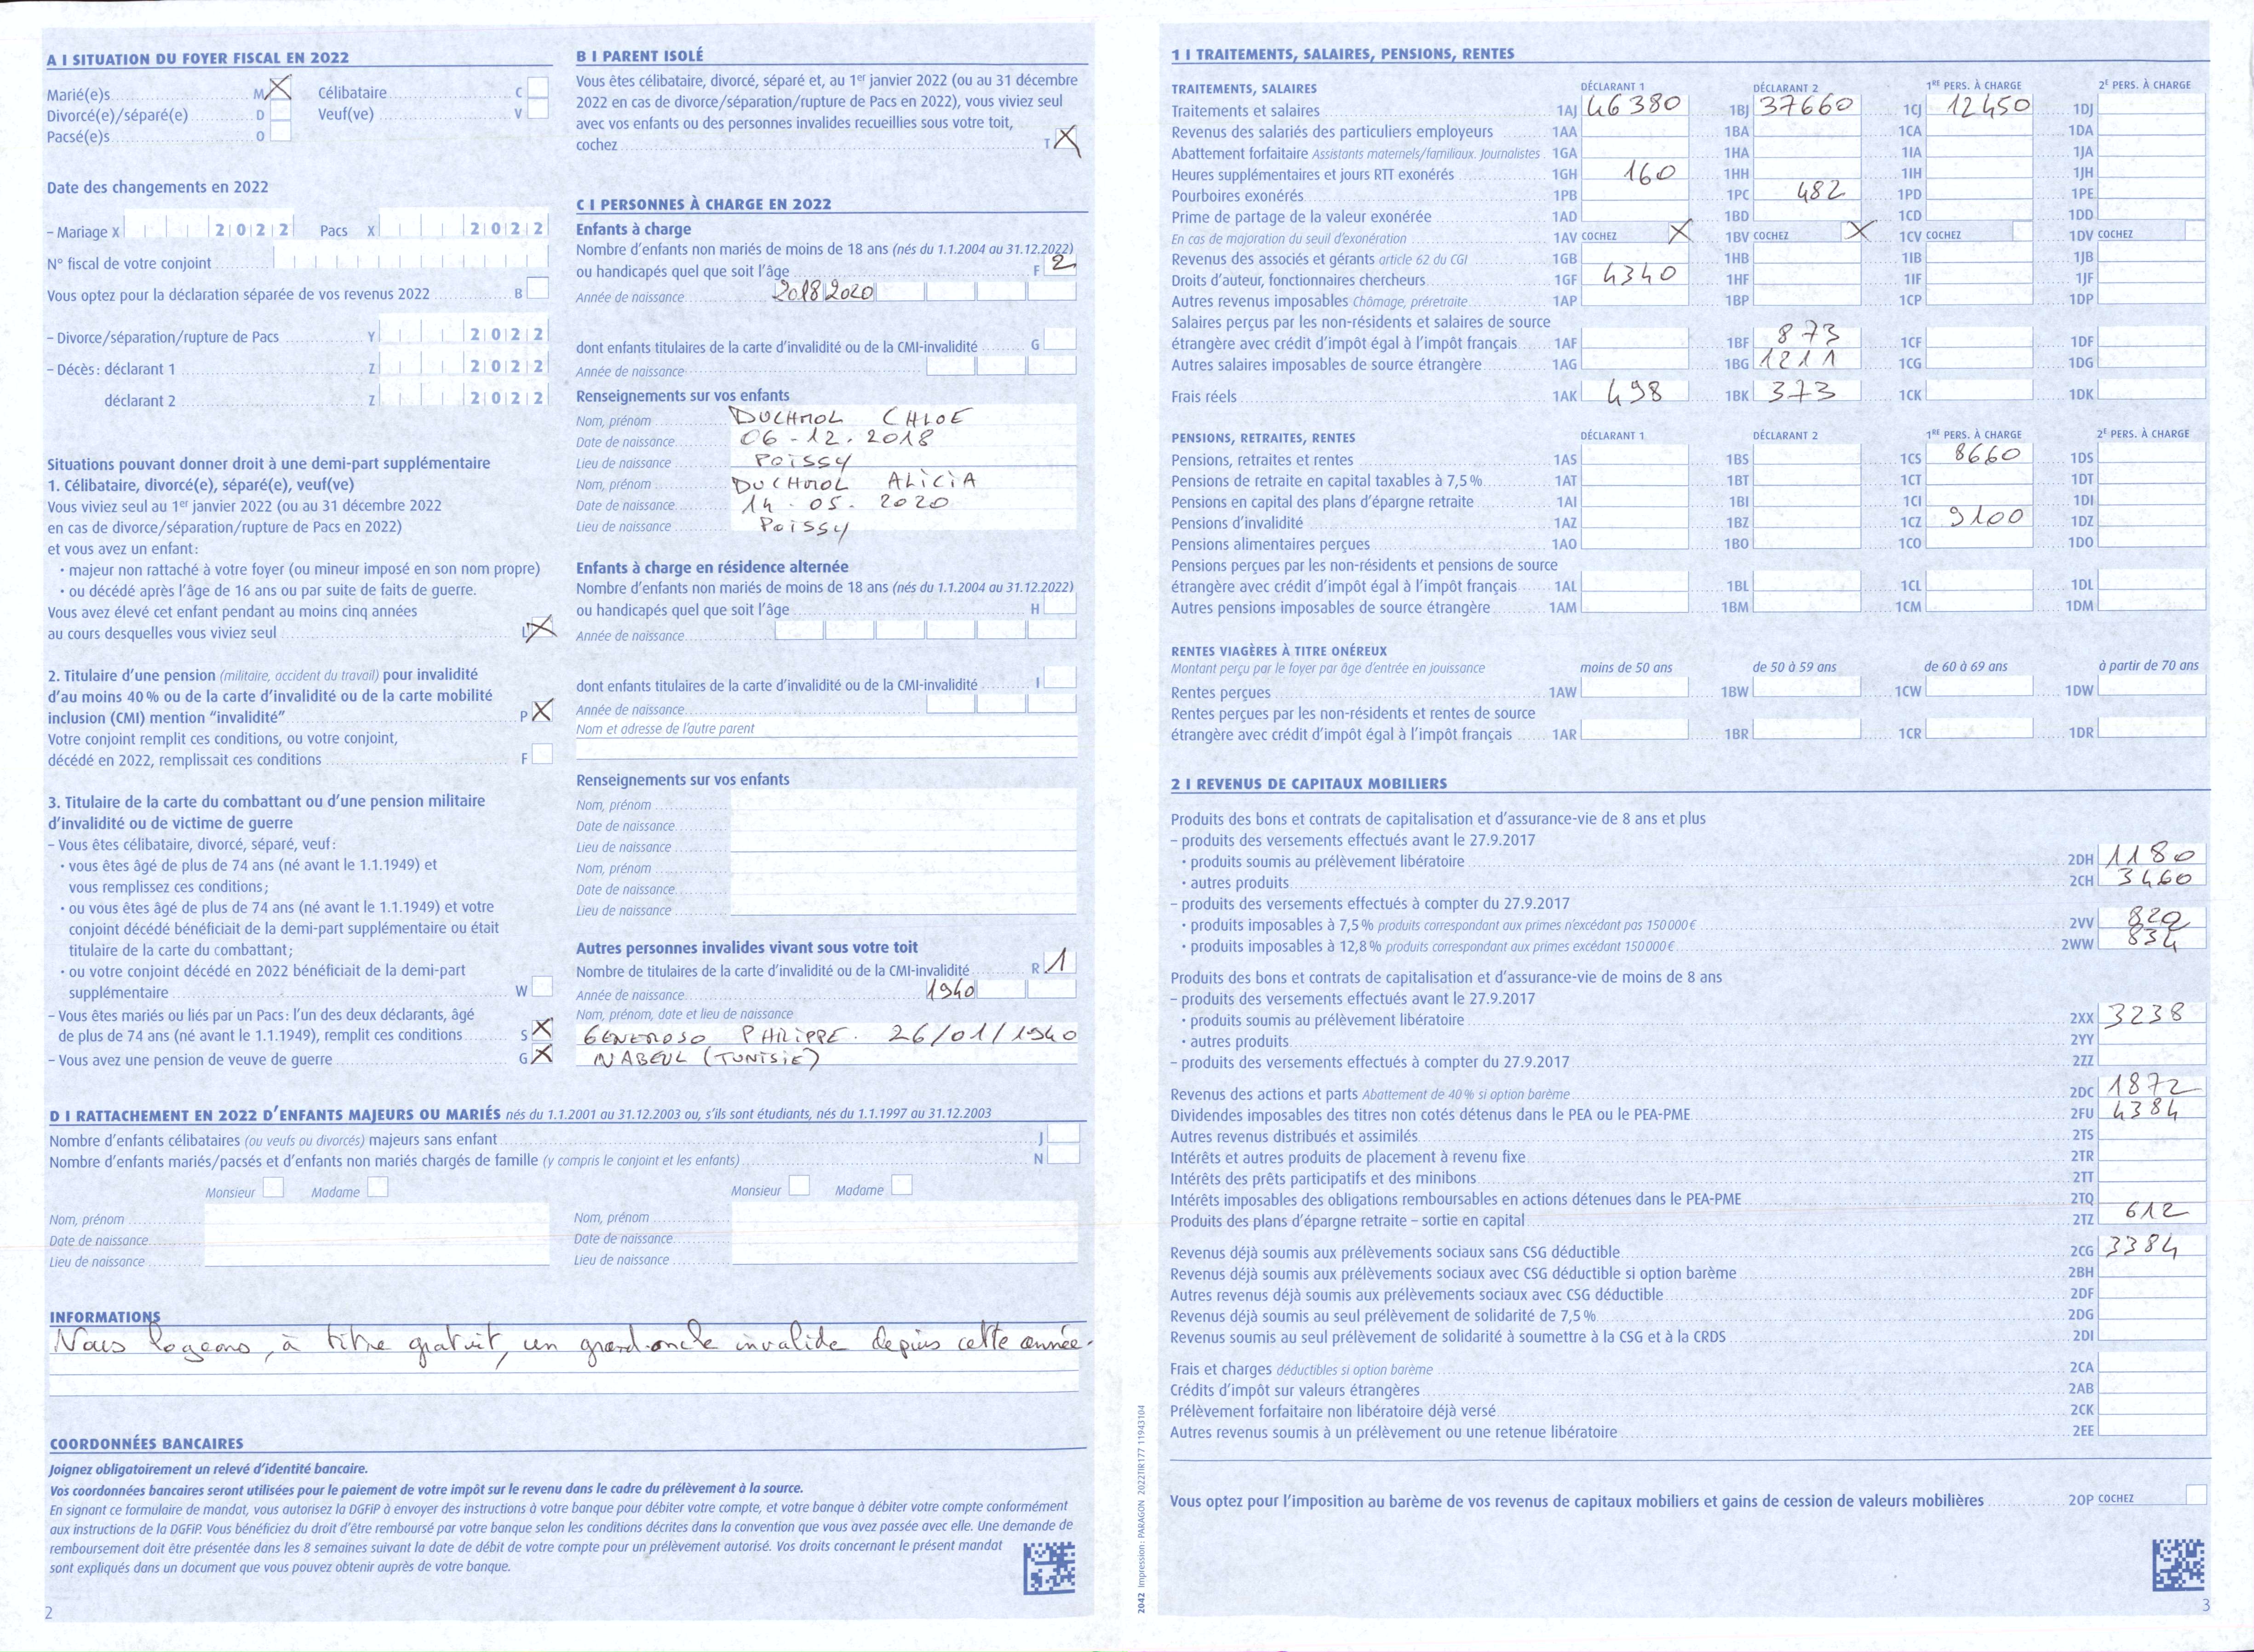 A I SITUATION DU FOYER FISCAL EN 2022
Marié(e)s M X Célibataire C
Divorcé(e)/séparé(e) D Veuf(ve) V
Pacsé(e)s O
Date des changements en 2022
– Mariage X 2022 Pacs X 2022
N° fiscal de votre conjoint
Vous optez pour la déclaration séparée de vos revenus 2022 B
– Divorce/séparation/rupture de Pacs Y 2022
– Décès : déclarant 1 Z 2022
déclarant 2 Z 2022
Situations pouvant donner droit à une demi-part supplémentaire
1. Célibataire, divorcé(e), séparé(e), veuf(ve)
Vous viviez seul au 1er janvier 2022 (ou au 31 décembre 2022
en cas de divorce/séparation/rupture de Pacs en 2022)
et vous avez un enfant :
• majeur non rattaché à votre foyer (ou mineur imposé en son nom propre)
• ou décédé après l'âge de 16 ans ou par suite de faits de guerre.
Vous avez élevé cet enfant pendant au moins cinq années
au cours desquelles vous viviez seul L X
2. Titulaire d'une pension (militaire, accident du travail) pour invalidité
d'au moins 40 % ou de la carte d'invalidité ou de la carte mobilité
inclusion (CMI) mention "invalidité" P X
Votre conjoint remplit ces conditions, ou votre conjoint,
décédé en 2022, remplissait ces conditions F
3. Titulaire de la carte du combattant ou d'une pension militaire
d'invalidité ou de victime de guerre
– Vous êtes célibataire, divorcé, séparé, veuf :
• vous êtes âgé de plus de 74 ans (né avant le 1.1.1949) et
vous remplissez ces conditions ;
• ou vous êtes âgé de plus de 74 ans (né avant le 1.1.1949) et votre
conjoint décédé bénéficiait de la demi-part supplémentaire ou était
titulaire de la carte du combattant ;
• ou votre conjoint décédé en 2022 bénéficiait de la demi-part
supplémentaire W
– Vous êtes mariés ou liés par un Pacs : l'un des deux déclarants, âgé
de plus de 74 ans (né avant le 1.1.1949), remplit ces conditions S X
– Vous avez une pension de veuve de guerre G X
B I PARENT ISOLÉ
Vous êtes célibataire, divorcé, séparé et, au 1er janvier 2022 (ou au 31 décembre
2022 en cas de divorce/séparation/rupture de Pacs en 2022), vous viviez seul
avec vos enfants ou des personnes invalides recueillies sous votre toit,
cochez T X
C I PERSONNES À CHARGE EN 2022
Enfants à charge
Nombre d'enfants non mariés de moins de 18 ans (nés du 1.1.2004 au 31.12.2022)
ou handicapés quel que soit l'âge F 2
Année de naissance 2018 2020
dont enfants titulaires de la carte d'invalidité ou de la CMI-invalidité G
Année de naissance
Renseignements sur vos enfants
Nom, prénom DUCHMOL CHLOE
Date de naissance 06-12.2018
Lieu de naissance POISSY
Nom, prénom DUCHMOL ALICIA
Date de naissance 14.05.2020
Lieu de naissance POISSY
Enfants à charge en résidence alternée
Nombre d'enfants non mariés de moins de 18 ans (nés du 1.1.2004 au 31.12.2022)
ou handicapés quel que soit l'âge H
Année de naissance
dont enfants titulaires de la carte d'invalidité ou de la CMI-invalidité I
Année de naissance
Nom et adresse de l'autre parent
Renseignements sur vos enfants
Nom, prénom
Date de naissance
Lieu de naissance
Nom, prénom
Date de naissance
Lieu de naissance
Autres personnes invalides vivant sous votre toit
Nombre de titulaires de la carte d'invalidité ou de la CMI-invalidité R 1
Année de naissance 1940
Nom, prénom, date et lieu de naissance
GENEROSO PHILIPPE. 26/01/1940
NABEUL (TUNISIE)
D I RATTACHEMENT EN 2022 D'ENFANTS MAJEURS OU MARIÉS nés du 1.1.2001 au 31.12.2003 ou, s'ils sont étudiants, nés du 1.1.1997 au 31.12.2003
Nombre d'enfants célibataires (ou veufs ou divorcés) majeurs sans enfant J
Nombre d'enfants mariés/pacsés et d'enfants non mariés chargés de famille (y compris le conjoint et les enfants) N
Monsieur Madame Monsieur Madame
Nom, prénom Nom, prénom
Date de naissance Date de naissance
Lieu de naissance Lieu de naissance
INFORMATIONS
Nous logeons, à titre gratuit, un grand-oncle invalide depuis cette année.
COORDONNÉES BANCAIRES
Joignez obligatoirement un relevé d'identité bancaire.
Vos coordonnées bancaires seront utilisées pour le paiement de votre impôt sur le revenu dans le cadre du prélèvement à la source.
En signant ce formulaire de mandat, vous autorisez la DGFiP à envoyer des instructions à votre banque pour débiter votre compte, et votre banque à débiter votre compte conformément
aux instructions de la DGFiP. Vous bénéficiez du droit d'être remboursé par votre banque selon les conditions décrites dans la convention que vous avez passée avec elle. Une demande de
remboursement doit être présentée dans les 8 semaines suivant la date de débit de votre compte pour un prélèvement autorisé. Vos droits concernant le présent mandat
sont expliqués dans un document que vous pouvez obtenir auprès de votre banque.
2
2042 Impression : PARAGON 2022TIR177 11943104
1 I TRAITEMENTS, SALAIRES, PENSIONS, RENTES
TRAITEMENTS, SALAIRES DÉCLARANT 1 DÉCLARANT 2 1RE PERS. À CHARGE 2E PERS. À CHARGE
Traitements et salaires 1AJ 46380 1BJ 37660 1CJ 12450 1DJ
Revenus des salariés des particuliers employeurs 1AA 1BA 1CA 1DA
Abattement forfaitaire Assistants maternels/familiaux. Journalistes 1GA 1HA 1IA 1JA
Heures supplémentaires et jours RTT exonérés 1GH 160 1HH 1IH 1JH
Pourboires exonérés 1PB 1PC 482 1PD 1PE
Prime de partage de la valeur exonérée 1AD 1BD 1CD 1DD
En cas de majoration du seuil d'exonération 1AV COCHEZ X 1BV COCHEZ X 1CV COCHEZ 1DV COCHEZ
Revenus des associés et gérants article 62 du CGI 1GB 1HB 1IB 1JB
Droits d'auteur, fonctionnaires chercheurs 1GF 4340 1HF 1IF 1JF
Autres revenus imposables Chômage, préretraite 1AP 1BP 1CP 1DP
Salaires perçus par les non-résidents et salaires de source
étrangère avec crédit d'impôt égal à l'impôt français 1AF 1BF 873 1CF 1DF
Autres salaires imposables de source étrangère 1AG 1BG 1211 1CG 1DG
Frais réels 1AK 498 1BK 373 1CK 1DK
PENSIONS, RETRAITES, RENTES DÉCLARANT 1 DÉCLARANT 2 1RE PERS. À CHARGE 2E PERS. À CHARGE
Pensions, retraites et rentes 1AS 1BS 1CS 8660 1DS
Pensions de retraite en capital taxables à 7,5 % 1AT 1BT 1CT 1DT
Pensions en capital des plans d'épargne retraite 1AI 1BI 1CI 1DI
Pensions d'invalidité 1AZ 1BZ 1CZ 9100 1DZ
Pensions alimentaires perçues 1AO 1BO 1CO 1DO
Pensions perçues par les non-résidents et pensions de source
étrangère avec crédit d'impôt égal à l'impôt français 1AL 1BL 1CL 1DL
Autres pensions imposables de source étrangère 1AM 1BM 1CM 1DM
RENTES VIAGÈRES À TITRE ONÉREUX
Montant perçu par le foyer par âge d'entrée en jouissance moins de 50 ans de 50 à 59 ans de 60 à 69 ans à partir de 70 ans
Rentes perçues 1AW 1BW 1CW 1DW
Rentes perçues par les non-résidents et rentes de source
étrangère avec crédit d'impôt égal à l'impôt français 1AR 1BR 1CR 1DR
2 I REVENUS DE CAPITAUX MOBILIERS
Produits des bons et contrats de capitalisation et d'assurance-vie de 8 ans et plus
– produits des versements effectués avant le 27.9.2017
• produits soumis au prélèvement libératoire 2DH 1180
• autres produits 2CH 3460
– produits des versements effectués à compter du 27.9.2017
• produits imposables à 7,5 % produits correspondant aux primes n'excédant pas 150 000 € 2VV 820
• produits imposables à 12,8 % produits correspondant aux primes excédant 150 000 € 2WW 834
Produits des bons et contrats de capitalisation et d'assurance-vie de moins de 8 ans
– produits des versements effectués avant le 27.9.2017
• produits soumis au prélèvement libératoire 2XX 3238
• autres produits 2YY
– produits des versements effectués à compter du 27.9.2017 2ZZ
Revenus des actions et parts Abattement de 40 % si option barème 2DC 1872
Dividendes imposables des titres non cotés détenus dans le PEA ou le PEA-PME 2FU 4384
Autres revenus distribués et assimilés 2TS
Intérêts et autres produits de placement à revenu fixe 2TR
Intérêts des prêts participatifs et des minibons 2TT
Intérêts imposables des obligations remboursables en actions détenues dans le PEA-PME 2TQ
Produits des plans d'épargne retraite – sortie en capital 2TZ 612
Revenus déjà soumis aux prélèvements sociaux sans CSG déductible 2CG 3384
Revenus déjà soumis aux prélèvements sociaux avec CSG déductible si option barème 2BH
Autres revenus déjà soumis aux prélèvements sociaux avec CSG déductible 2DF
Revenus déjà soumis au seul prélèvement de solidarité de 7,5 % 2DG
Revenus soumis au seul prélèvement de solidarité à soumettre à la CSG et à la CRDS 2DI
Frais et charges déductibles si option barème 2CA
Crédits d'impôt sur valeurs étrangères 2AB
Prélèvement forfaitaire non libératoire déjà versé 2CK
Autres revenus soumis à un prélèvement ou une retenue libératoire 2EE
Vous optez pour l'imposition au barème de vos revenus de capitaux mobiliers et gains de cession de valeurs mobilières 2OP COCHEZ
3